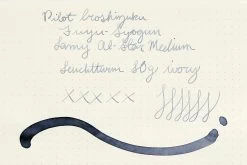 Pilot Iroshizuku
Fuyu-Syogun
Lamy Al-Star Medium
Leuchtturm 80g ivory
xxxxx